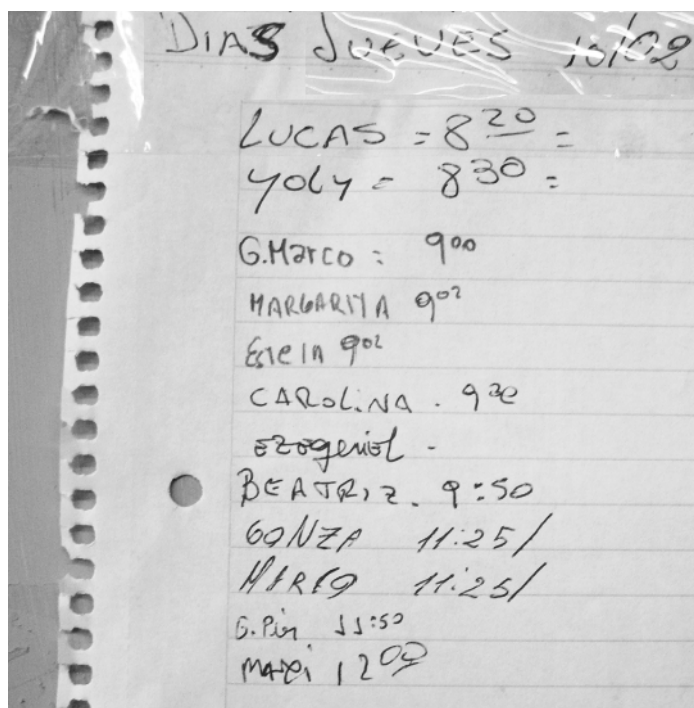 DIAS JUEVES 10/02
LUCAS = 8 20 =
YOLY = 8 30 =
G. Marco : 9 00
MARGARITA 9 02
Estela 9 02
CAROLINA . 9 30
BEATRIZ . 9:50
GONZA 11:25/
MARIO 11:25/
G. Pier 11:50
MAXi 12 00